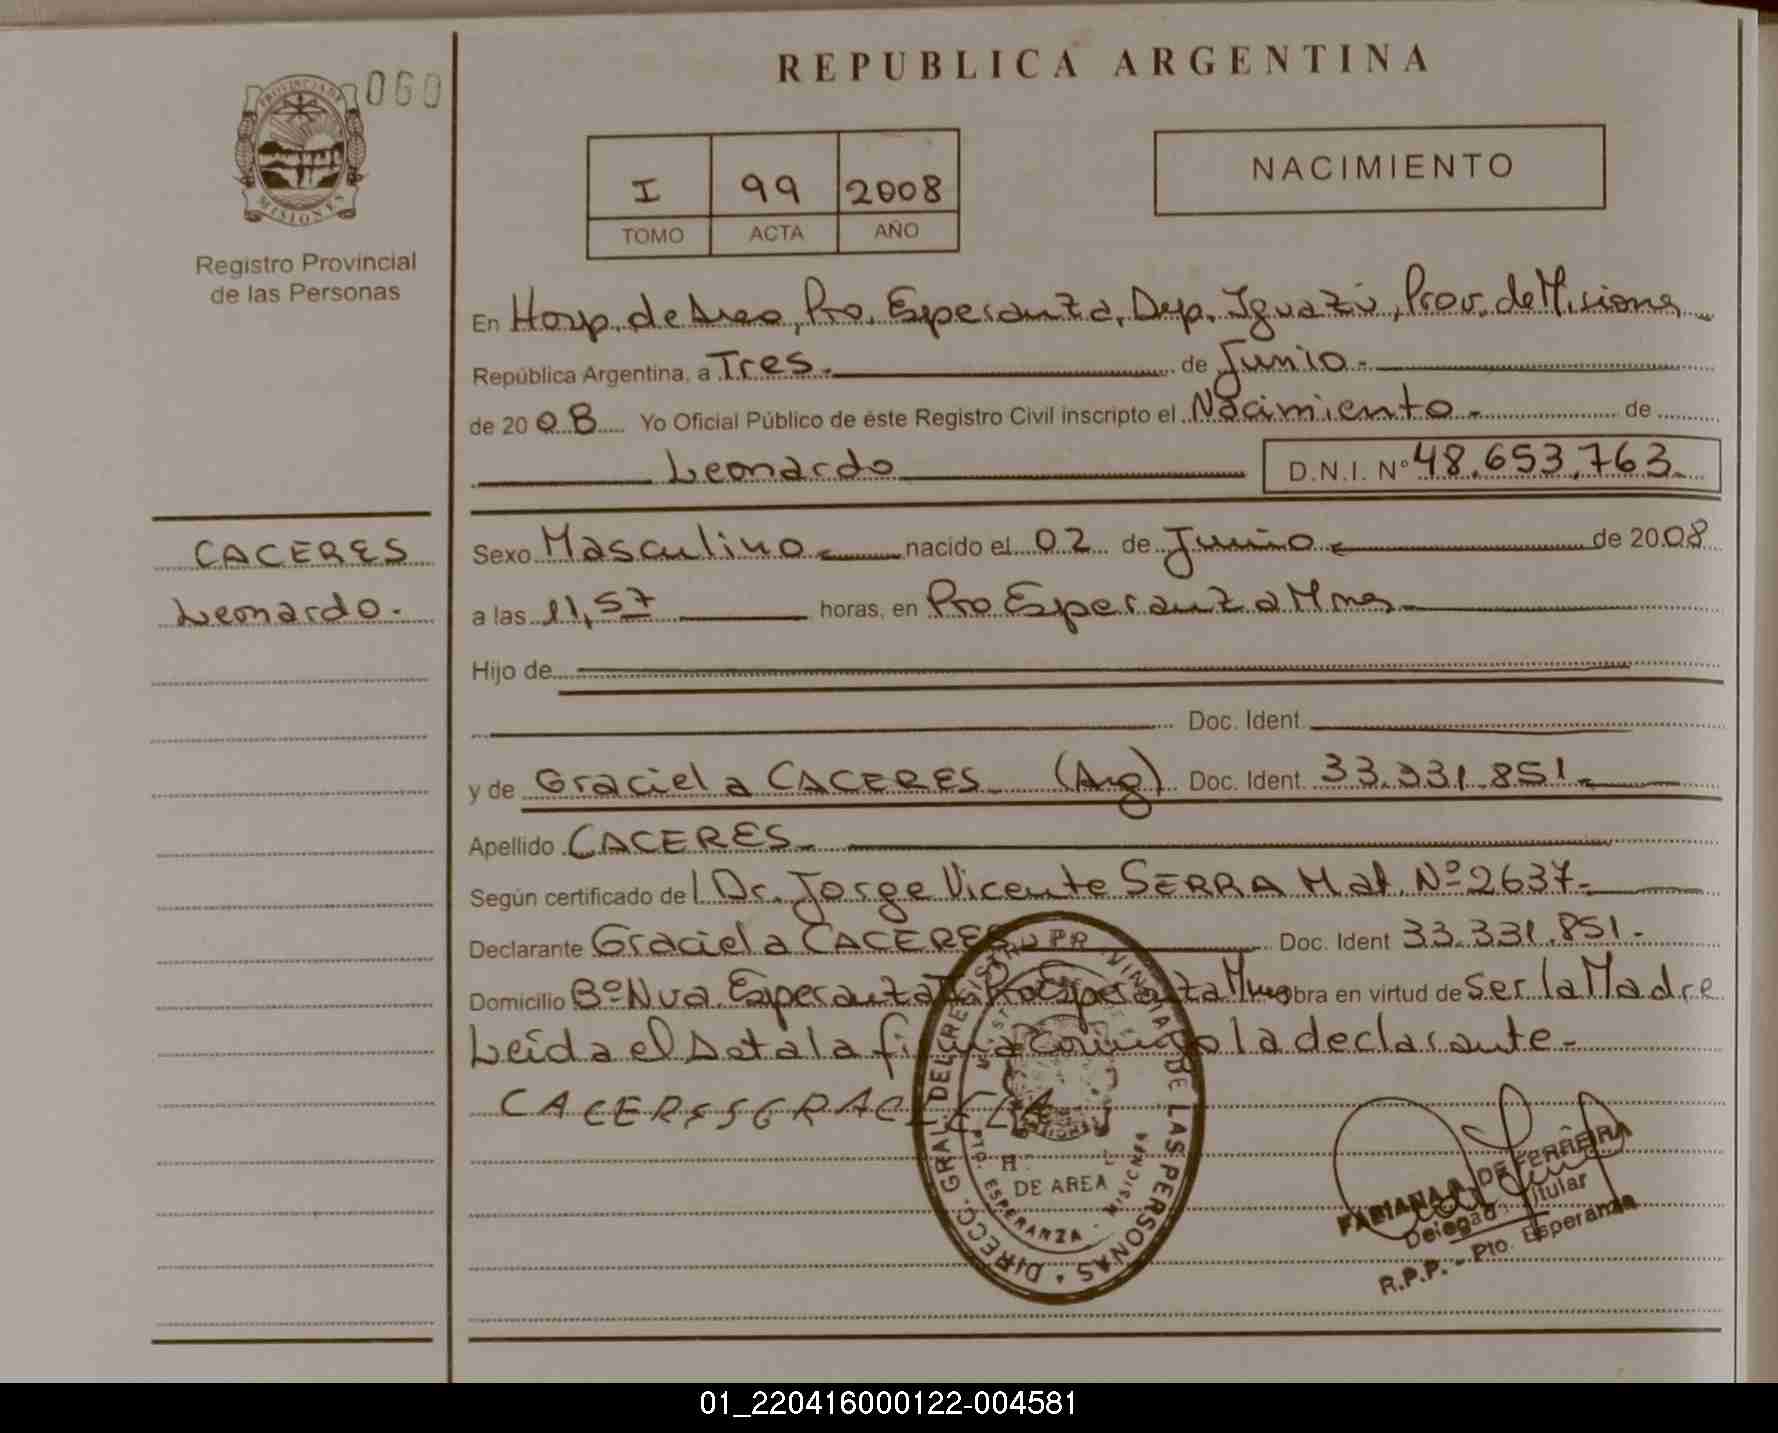 REPUBLICA ARGENTINA
060
PROVINCIA DE
MISIONES
Registro Provincial
de las Personas
I 99 2008
TOMO ACTA AÑO
NACIMIENTO
En Hosp. de Area, Pto. Esperanza, Dep. Iguazú, Prov. de Misiones
República Argentina, a Tres.- de Junio.-
de 2008 Yo Oficial Público de éste Registro Civil inscripto el Nacimiento.- de
Leonardo D.N.I. Nº 48.653.763.-
CACERES
Leonardo.-
Sexo Masculino nacido el 02 de Junio de 2008
a las 11,57 horas, en Pto Esperanza Mnes
Hijo de
Doc. Ident.
y de Graciela CACERES (Arg) Doc. Ident. 33.331.851.-
Apellido CACERES.-
Según certificado del Dr. Jorge Vicente SERRA Mat. Nº 2637.-
Declarante Graciela CACERES Doc. Ident 33.331.851.-
Domicilio Bº Nva Esperanza Pto Esperanza Mnes obra en virtud de Ser la Madre
Leída el Acta la firma conmigo la declarante.-
CACERES GRACIELA
DIRECC. GRAL. DEL REGISTRO PROVINCIAL DE LAS PERSONAS
H.
DE AREA
PTO. ESPERANZA - MISIONES
FABIANA R. DE FERREIRA
Delegada Titular
R.P.P. - Pto. Esperanza
01_220416000122-004581